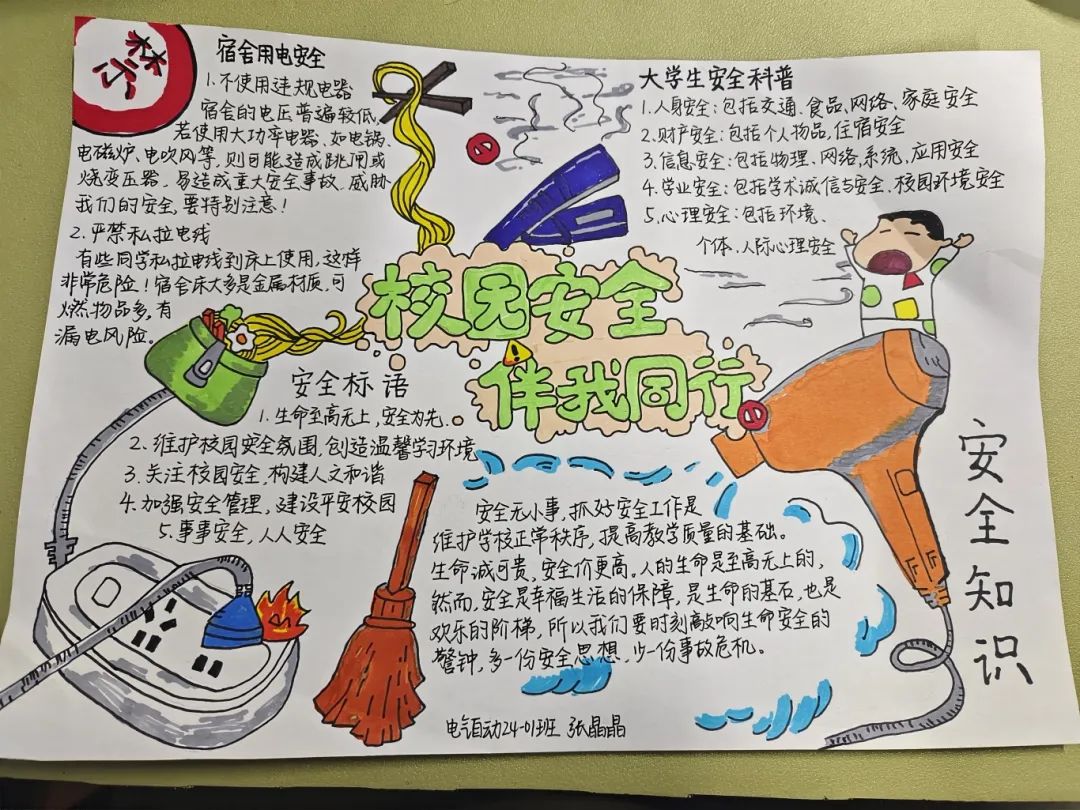 禁行
宿舍用电安全
1.不使用违规电器
宿舍的电压普遍较低,
若使用大功率电器、如电锅、
电磁炉、电吹风等,则可能造成跳闸或
烧变压器,易造成重大安全事故,威胁
我们的安全,要特别注意!
2.严禁私拉电线
有些同学私拉电线到床上使用,这样
非常危险!宿舍床大多是金属材质,可
燃物品多,有
漏电风险。
大学生安全科普
1.人身安全:包括交通、食品、网络、家庭安全
2.财产安全:包括个人物品,住宿安全
3.信息安全:包括物理、网络,系统、应用安全
4.学业安全:包括学术诚信与安全、校园环境安全
5.心理安全:包括环境、
个体、人际心理安全
校园安全
伴我同行
安全标语
1.生命至高无上,安全为先.
2.维护校园安全氛围,创造温馨学习环境
3.关注校园安全,构建人文和谐
4.加强安全管理,建设平安校园
5.事事安全,人人安全
安全无小事,抓好安全工作是
维护学校正常秩序,提高教学质量的基础。
生命诚可贵,安全价更高。人的生命是至高无上的,
然而,安全是幸福生活的保障,是生命的基石,也是
欢乐的阶梯,所以我们要时刻敲响生命安全的
警钟,多一份安全思想,少一份事故危机。
电气自动24-01班 张晶晶
安全知识